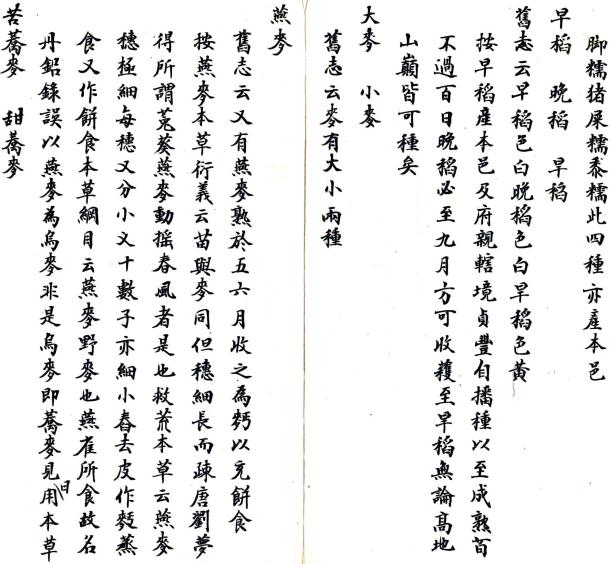 脚糯猪屎糯黍糯此四種亦產本邑
早稻 晚稻 旱稻
舊志云早稻色白晚稻色白旱稻色黃
按早稻產本邑及府親轄境貞豐自播種以至成熟苟
不過百日晚稻必至九月方可收穫至旱稻無論高地
山巔皆可種矣
大麥 小麥
舊志云麥有大小兩種
燕麥
舊志云又有燕麥熟於五六月收之為麪以充餅食
按燕麥本草衍義云苗與麥同但穗細長而疎唐劉夢
得所謂菟葵燕麥動摇春風者是也救荒本草云燕麥
穗極細每穗又分小义十數子亦細小舂去皮作麪蒸
食又作餅食本草綱目云燕麥野麥也燕雀所食故名
丹鉛錄誤以燕麥為烏麥非是烏麥即蕎麥見日用本草
苦蕎麥 甜蕎麥